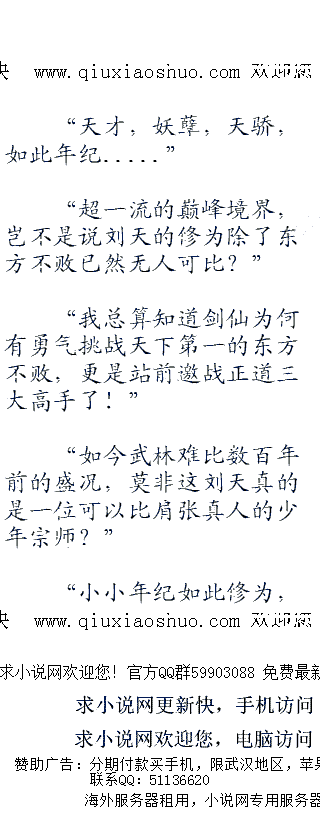 快 www.qiuxiaoshuo.com 欢迎您
“天才，妖孽，天骄，
如此年纪.....”
“超一流的巅峰境界，
岂不是说刘天的修为除了东
方不败已然无人可比？”
“我总算知道剑仙为何
有勇气挑战天下第一的东方
不败，更是站前邀战正道三
大高手了！”
“如今武林难比数百年
前的盛况，莫非这刘天真的
是一位可以比肩张真人的少
年宗师？”
“小小年纪如此修为，
快 www.qiuxiaoshuo.com 欢迎您
求小说网欢迎您！官方QQ群59903088 免费最新
求小说网更新快，手机访问
求小说网欢迎您，电脑访问
赞助广告：分期付款买手机，限武汉地区，苹果
联系QQ：51136620
海外服务器租用，小说网专用服务器